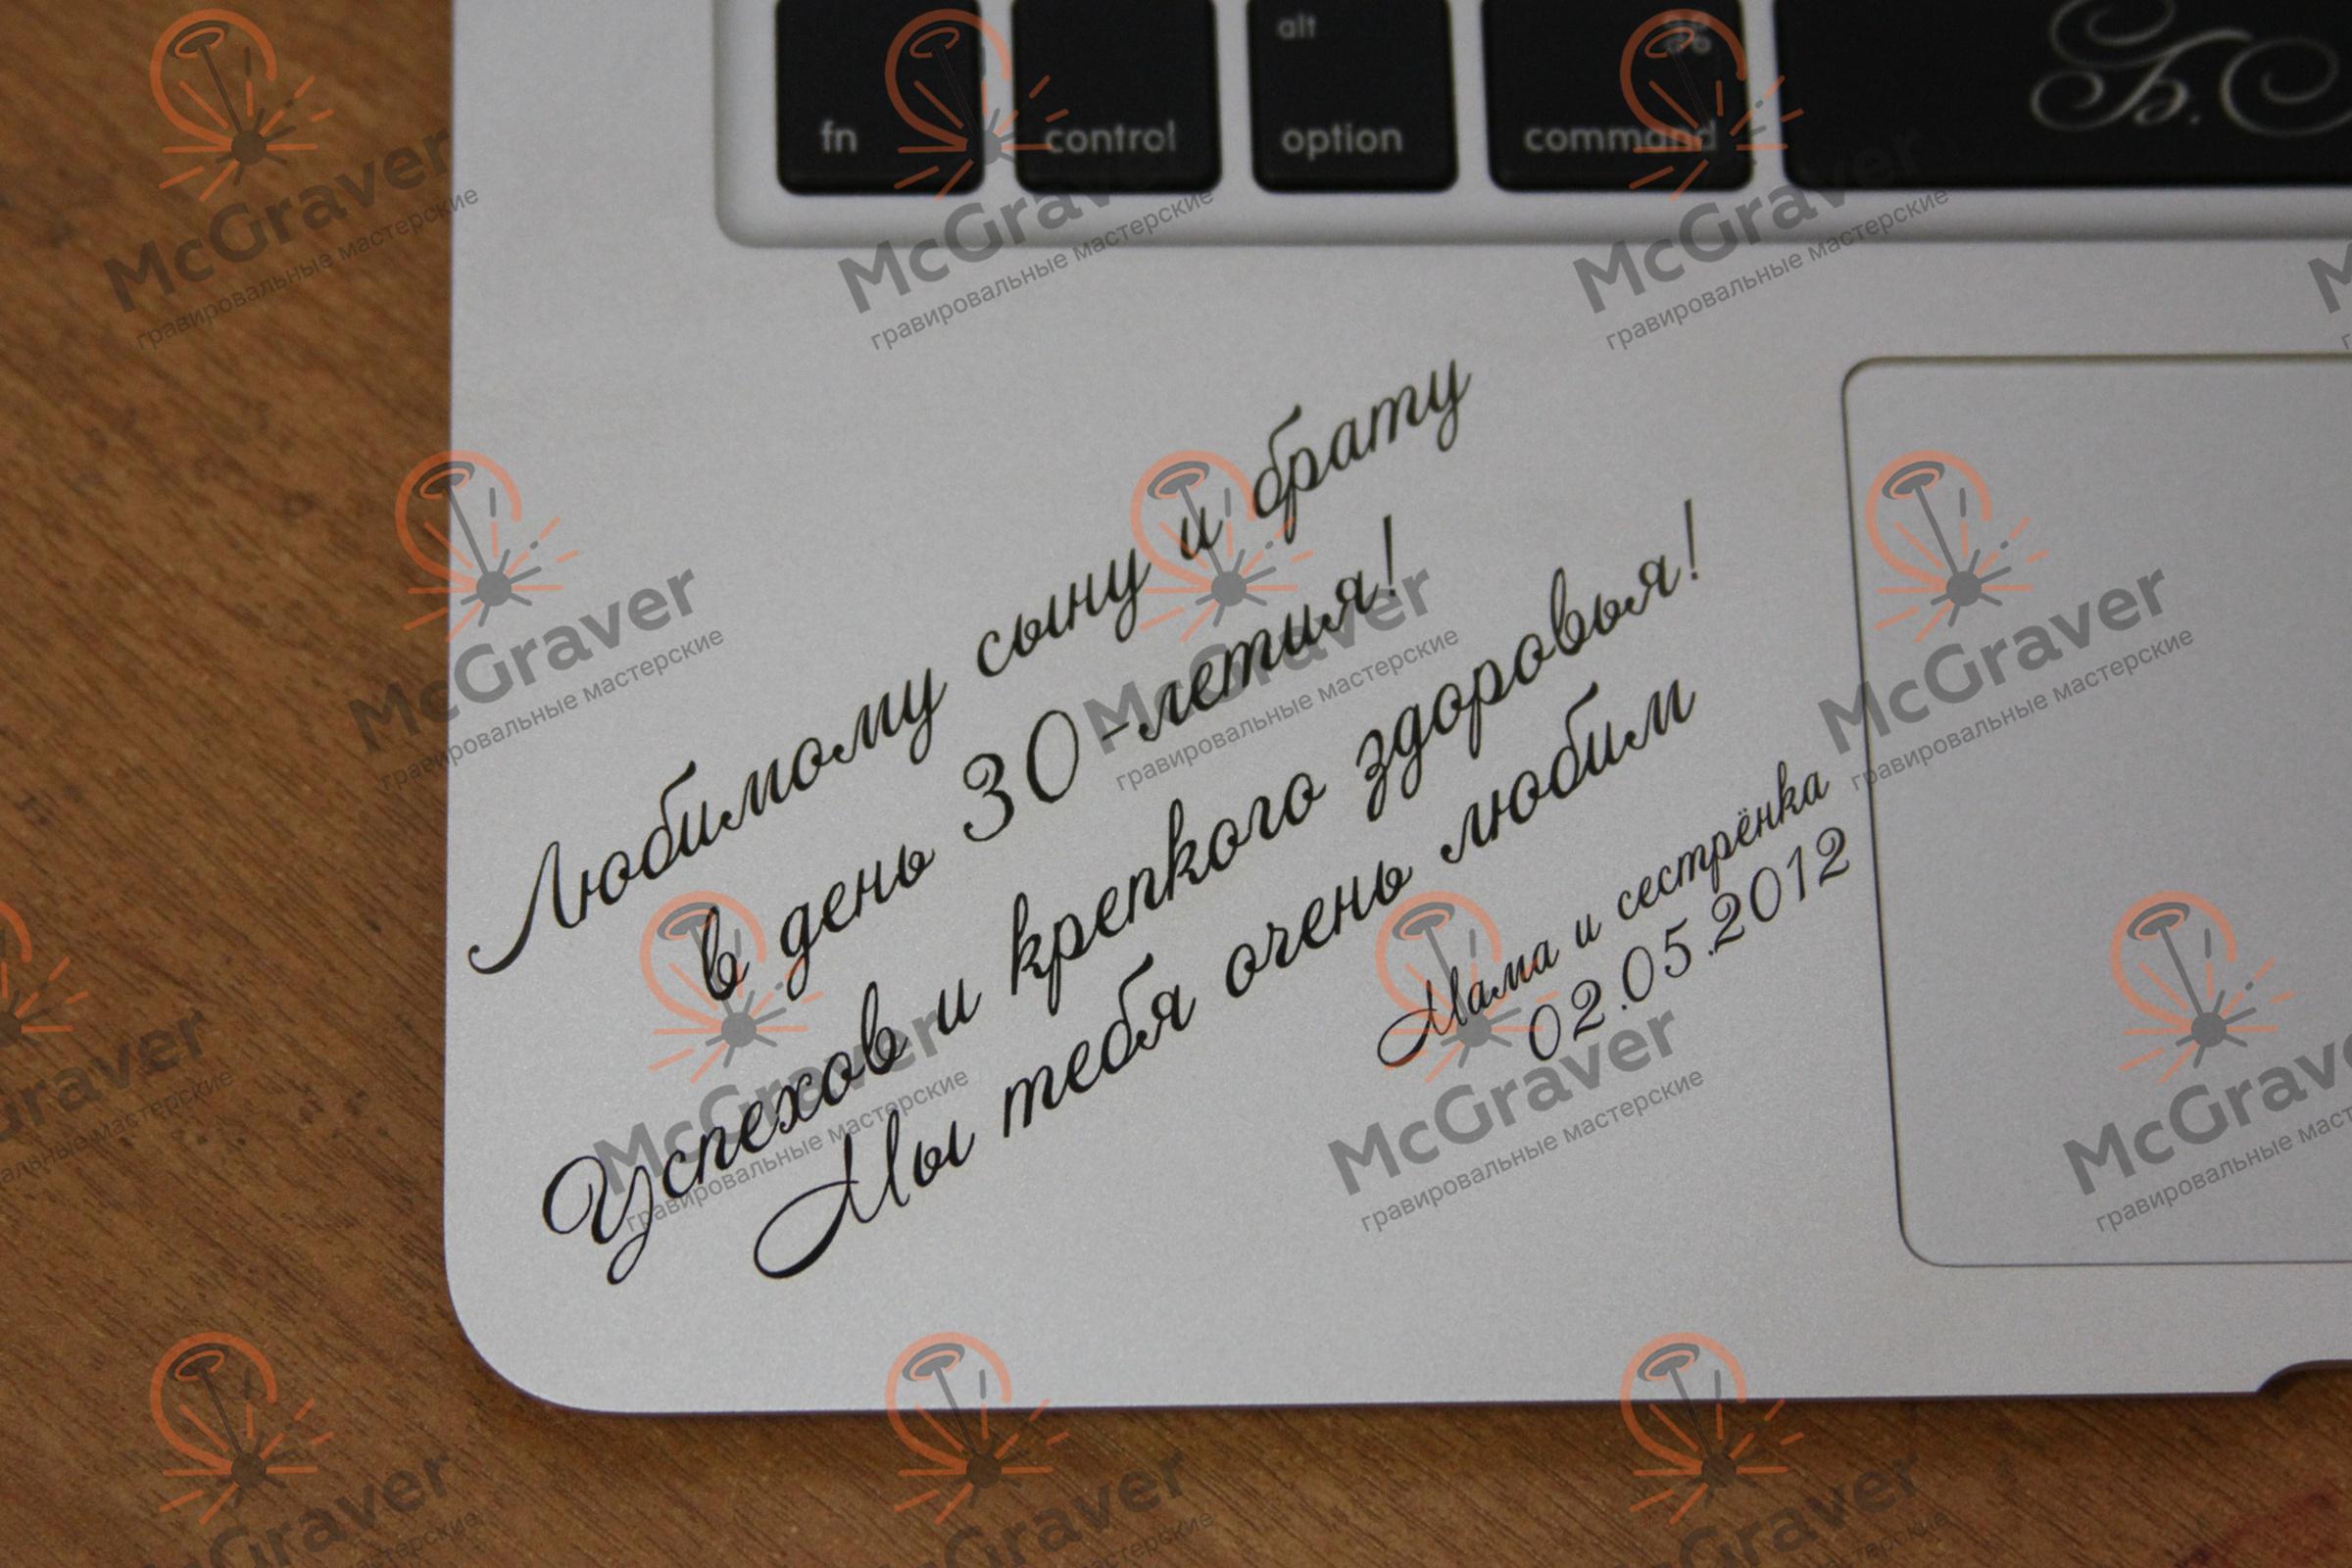 alt
⌘
fn
control
option
command
Б.
Любимому сыну и брату
в день 30-летия!
Успехов и крепкого здоровья!
Мы тебя очень любим
Мама и сестрёнка
02.05.2012
McGraver
гравировальные мастерские